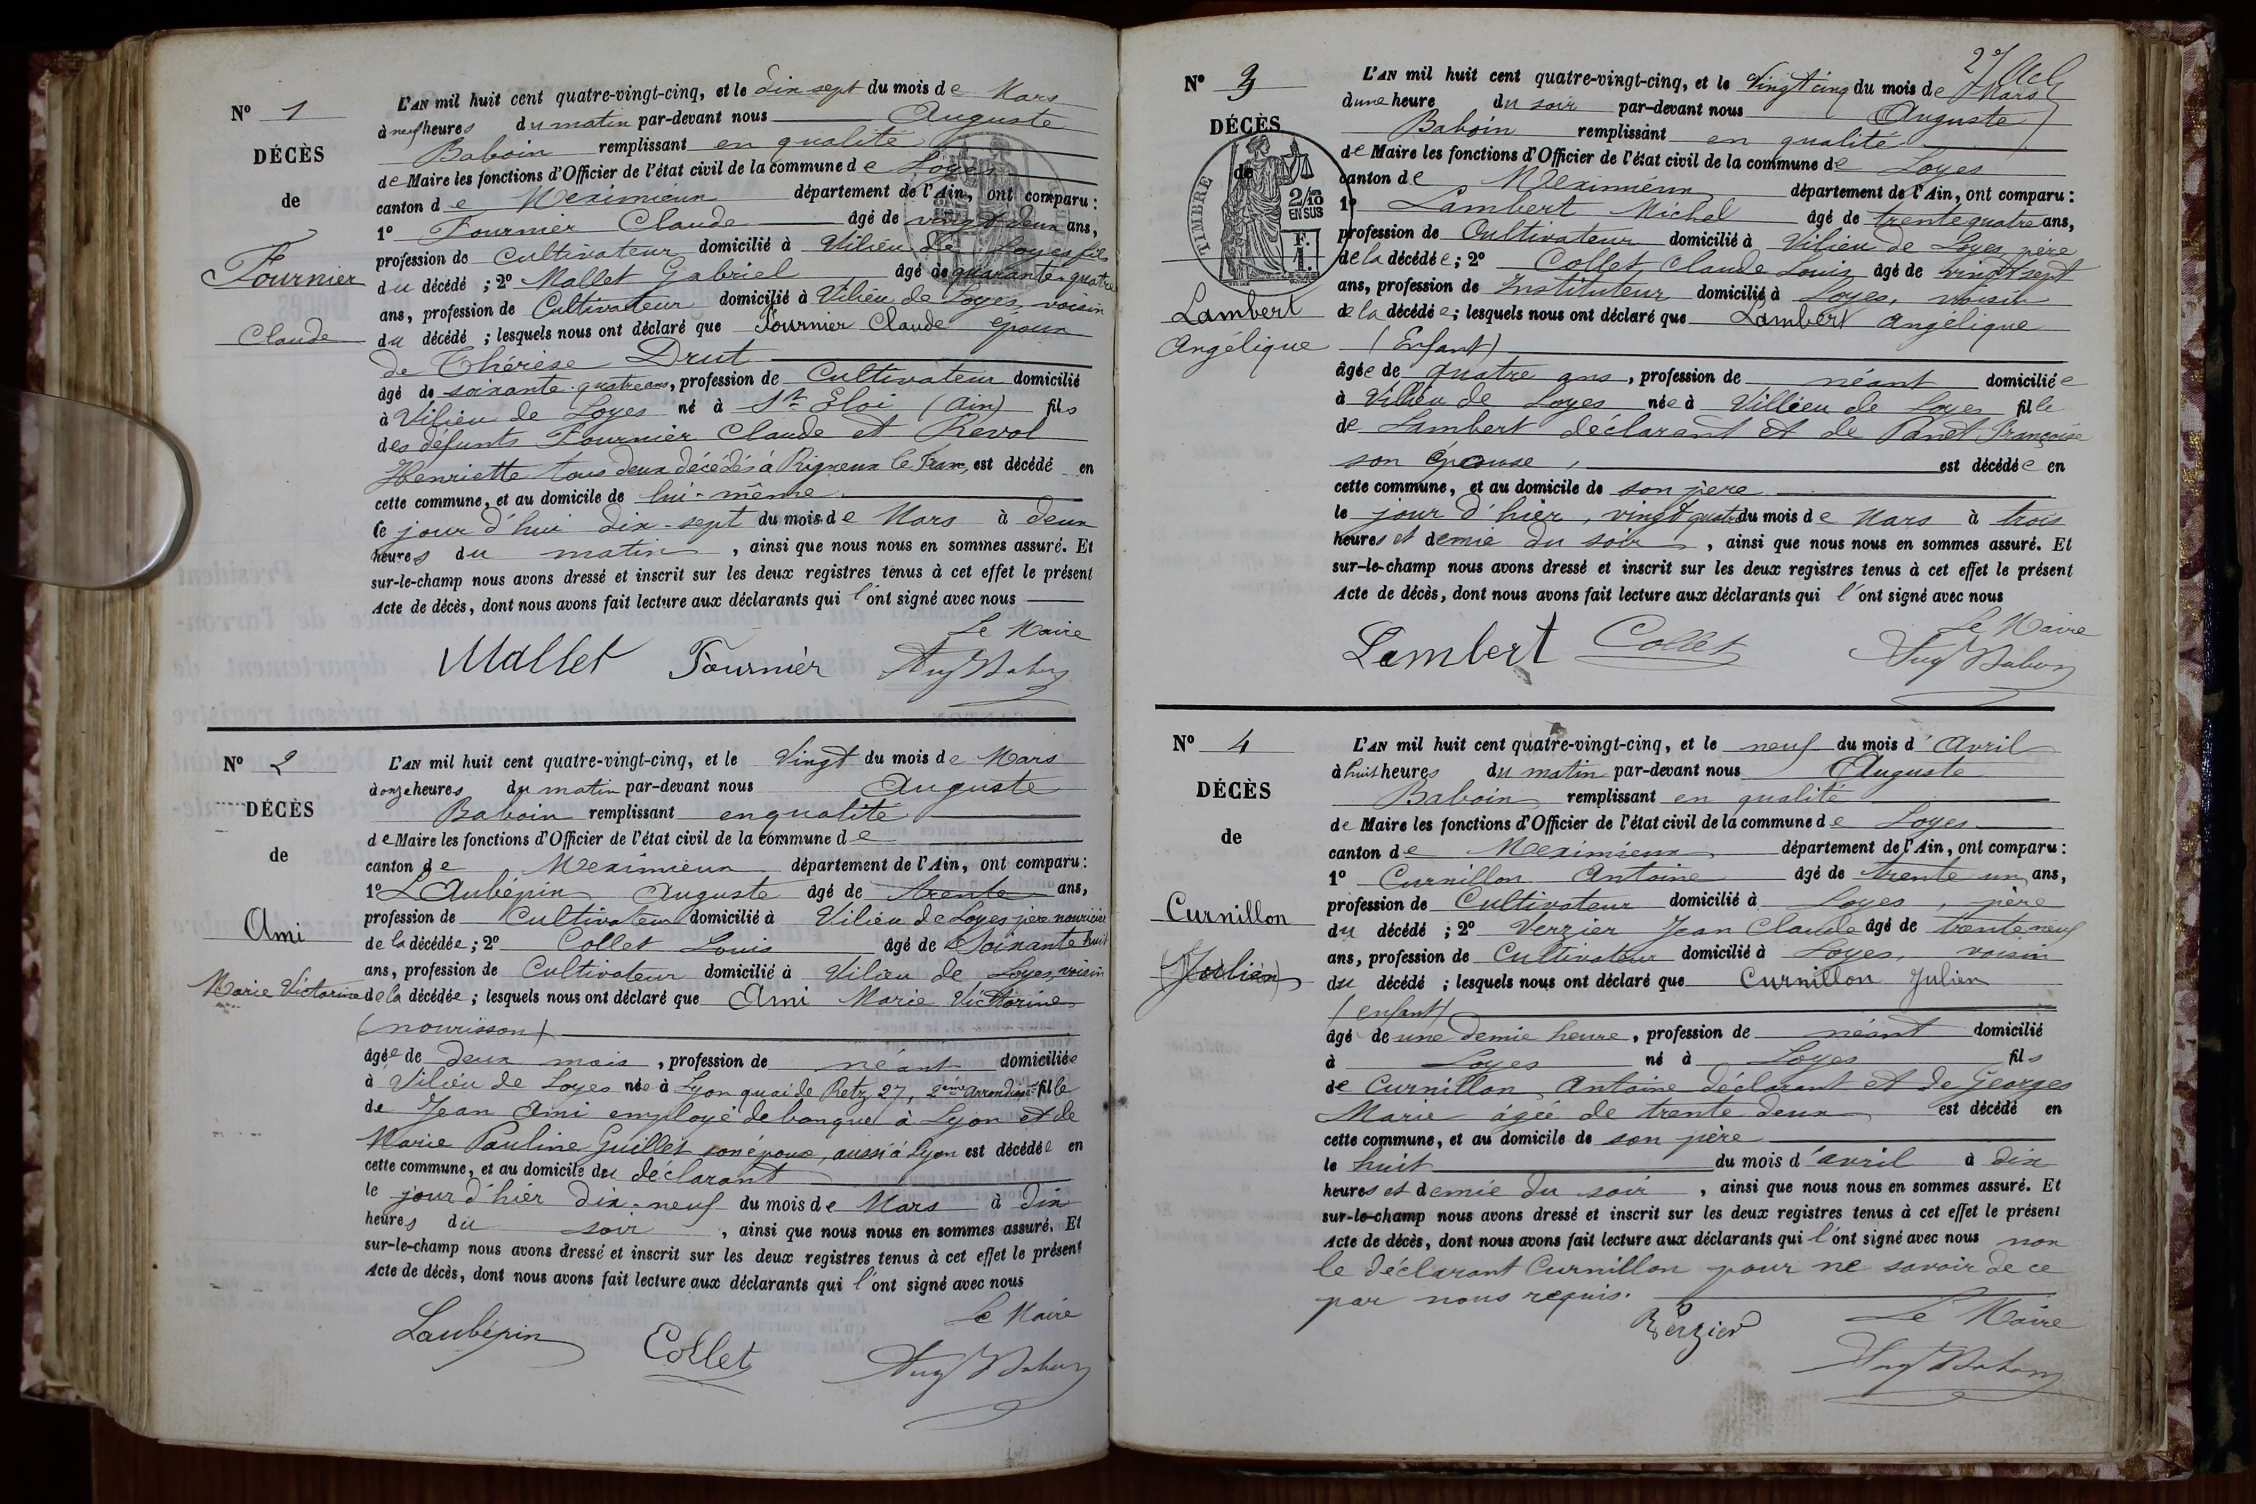 N° 1
DÉCÈS
de
Fournier
Claude
L'AN mil huit cent quatre-vingt-cinq, et le dix sept du mois de Mars
à neuf heures du matin par-devant nous Auguste
Baboin remplissant en qualité
de Maire les fonctions d'Officier de l'état civil de la commune de Loyes
canton de Meximieux département de l'Ain, ont comparu :
1° Fournier Claude âgé de vingt deux ans,
profession de Cultivateur domicilié à Vilieu de Loyes fils
du décédé ; 2° Mallet Gabriel âgé de quarante quatre
ans, profession de Cultivateur domicilié à Vilieu de Loyes, voisin
du décédé ; lesquels nous ont déclaré que Fournier Claude époux
de Thérèse Drut
âgé de soixante quatre ans, profession de Cultivateur domicilié
à Vilieu de Loyes né à St Eloi (Ain) fils
des défunts Fournier Claude et Revol
Henriette tous deux décédés à Rigneux le Franc, est décédé en
cette commune, et au domicile de lui-même
le jour d'hui dix-sept du mois de Mars à deux
heures du matin, ainsi que nous nous en sommes assuré. Et
sur-le-champ nous avons dressé et inscrit sur les deux registres tenus à cet effet le présent
Acte de décès, dont nous avons fait lecture aux déclarants qui l'ont signé avec nous
Le Maire
Mallet Fournier Aug Baboin
N° 2
DÉCÈS
de
Ami
Marie Victorine
L'AN mil huit cent quatre-vingt-cinq, et le Vingt du mois de Mars
à onze heures du matin par-devant nous Auguste
Baboin remplissant en qualité
de Maire les fonctions d'Officier de l'état civil de la commune de
canton de Meximieux département de l'Ain, ont comparu :
1° Laubépin Auguste âgé de trente ans,
profession de Cultivateur domicilié à Vilieu de Loyes père nourricier
de la décédée ; 2° Collet Louis âgé de Soixante huit
ans, profession de Cultivateur domicilié à Vilieu de Loyes, voisin
de la décédée ; lesquels nous ont déclaré que Ami Marie Victorine
(nourisson)
âgée de deux mois, profession de néant domiciliée
à Vilieu de Loyes née à Lyon quai de Retz 27, 2ème Arrondissnt fille
de Jean Ami employé de banque à Lyon et de
Marie Pauline Guillet son épouse, aussi à Lyon est décédée en
cette commune, et au domicile du déclarant
le jour d'hier dix-neuf du mois de Mars à dix
heures du soir, ainsi que nous nous en sommes assuré. Et
sur-le-champ nous avons dressé et inscrit sur les deux registres tenus à cet effet le présent
Acte de décès, dont nous avons fait lecture aux déclarants qui l'ont signé avec nous
Le Maire
Laubépin Collet Aug Baboin
N° 3
DÉCÈS
de
TIMBRE
2/10 EN SUS
F. 1.
Lambert
Angélique
L'AN mil huit cent quatre-vingt-cinq, et le Vingt cinq du mois de Mars
d'une heure du soir par-devant nous Auguste
Baboin remplissant en qualité
de Maire les fonctions d'Officier de l'état civil de la commune de Loyes
canton de Meximieux département de l'Ain, ont comparu :
1° Lambert Michel âgé de trente quatre ans,
profession de Cultivateur domicilié à Vilieu de Loyes père
de la décédée ; 2° Collet Claude Louis âgé de vingt sept
ans, profession de Instituteur domicilié à Loyes, voisin
de la décédée ; lesquels nous ont déclaré que Lambert Angélique
(Enfant)
âgée de quatre ans, profession de néant domiciliée
à Vilieu de Loyes née à Villieu de Loyes fille
de Lambert déclarant et de Panet Françoise
son épouse, est décédée en
cette commune, et au domicile de son père
le jour d'hier, vingt quatre du mois de Mars à trois
heures et demie du soir, ainsi que nous nous en sommes assuré. Et
sur-le-champ nous avons dressé et inscrit sur les deux registres tenus à cet effet le présent
Acte de décès, dont nous avons fait lecture aux déclarants qui l'ont signé avec nous
Le Maire
Lambert Collet Aug Baboin
N° 4
DÉCÈS
de
Curnillon
(Julien)
L'AN mil huit cent quatre-vingt-cinq, et le neuf du mois d'Avril
à huit heures du matin par-devant nous Auguste
Baboin remplissant en qualité
de Maire les fonctions d'Officier de l'état civil de la commune de Loyes
canton de Meximieux département de l'Ain, ont comparu :
1° Curnillon Antoine âgé de trente un ans,
profession de Cultivateur domicilié à Loyes, père
du décédé ; 2° Verzier Jean Claude âgé de trente neuf
ans, profession de Cultivateur domicilié à Loyes, voisin
du décédé ; lesquels nous ont déclaré que Curnillon Julien
(enfant)
âgé de une demie heure, profession de néant domicilié
à Loyes né à Loyes fils
de Curnillon Antoine déclarant et de Georges
Marie âgée de trente deux est décédé en
cette commune, et au domicile de son père
le huit du mois d'avril à dix
heures et demie du soir, ainsi que nous nous en sommes assuré. Et
sur-le-champ nous avons dressé et inscrit sur les deux registres tenus à cet effet le présent
Acte de décès, dont nous avons fait lecture aux déclarants qui l'ont signé avec nous non
le déclarant Curnillon pour ne savoir de ce
par nous requis.
Le Maire
Verzier Aug Baboin